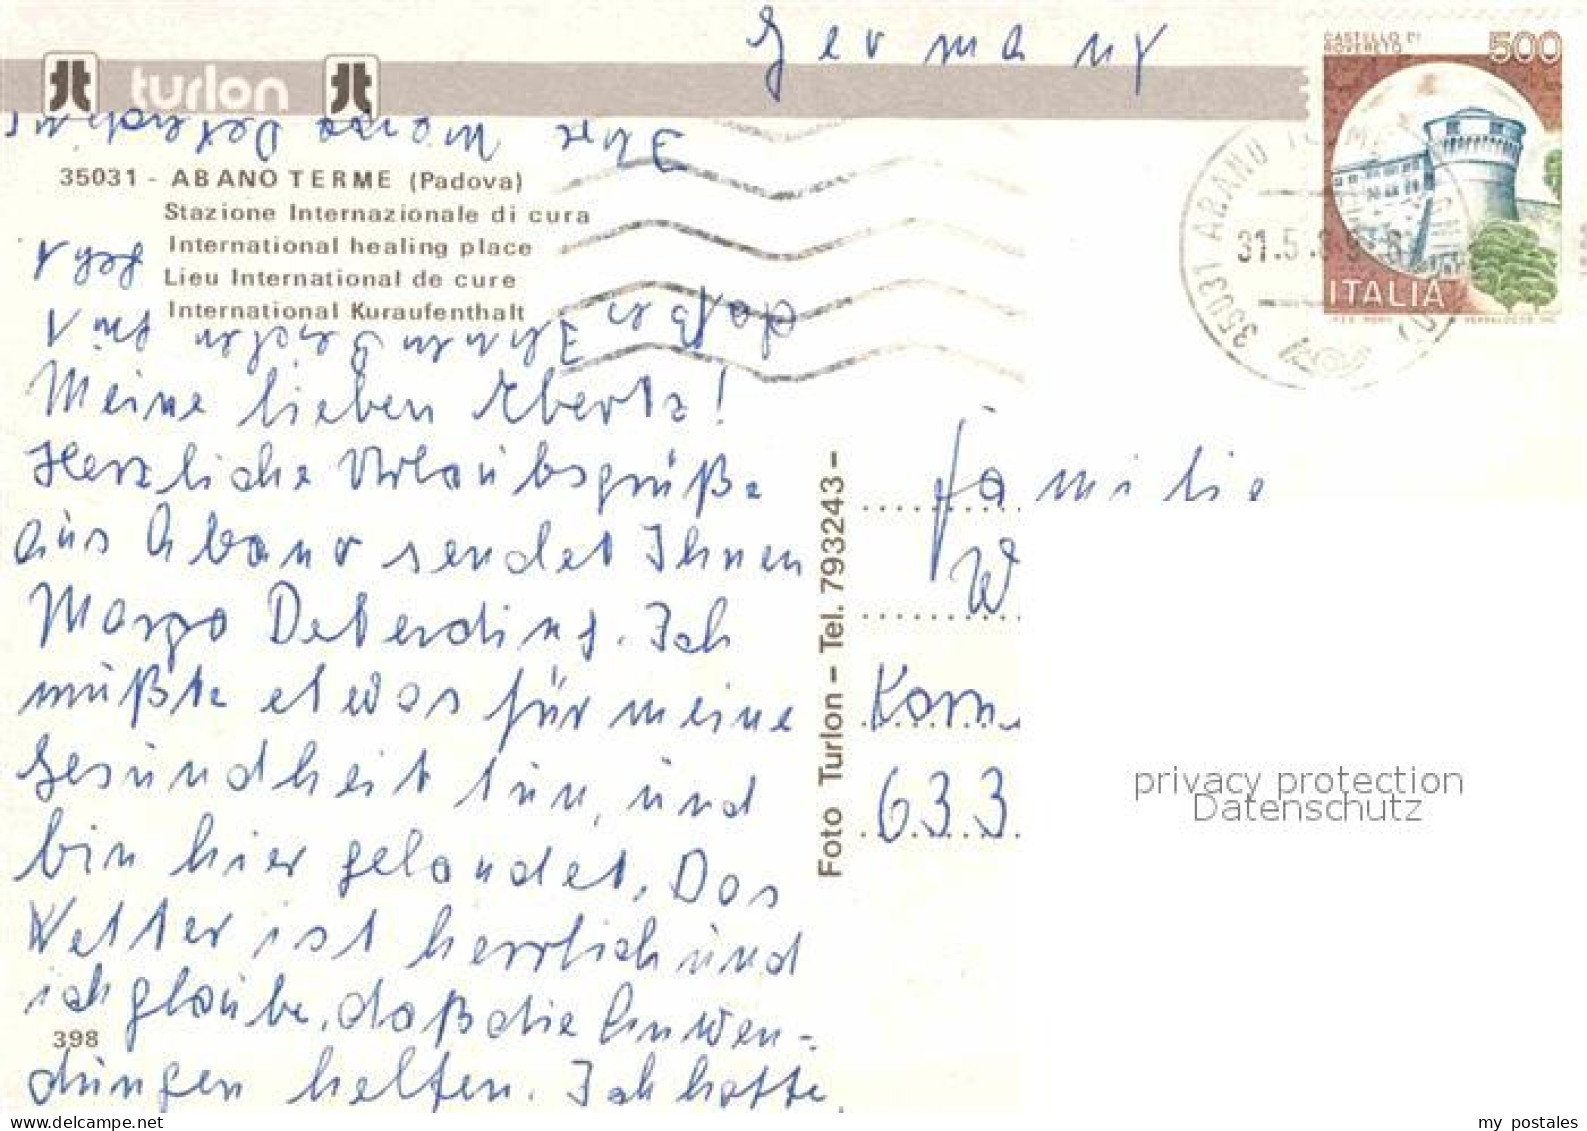 Germany
CASTELLO DI
ROVERETO
500
ITALIA
turlon
35031 - ABANO TERME (Padova)
Stazione Internazionale di cura
International healing place
Lieu International de cure
International Kuraufenthalt
35031 ABANO TERME
31.5
Meine lieben Eberts!
Herzliche Urlaubsgrüße
aus Abano sendet Ihnen
Margo Deterding. Ich
müßte etwas für meine
Gesundheit tun, und
bin hier gelandet. Das
Wetter ist herrlich und
ich glaube, daß die Anwen-
dungen helfen. Ich hoffe,
daß es Ihnen Dreien gut
geht
Ihre Margo Deterding
398
Foto Turlon - Tel. 793243 -
Familie
W
Korn
633
privacy protection
Datenschutz
my postales
www.delcampe.net